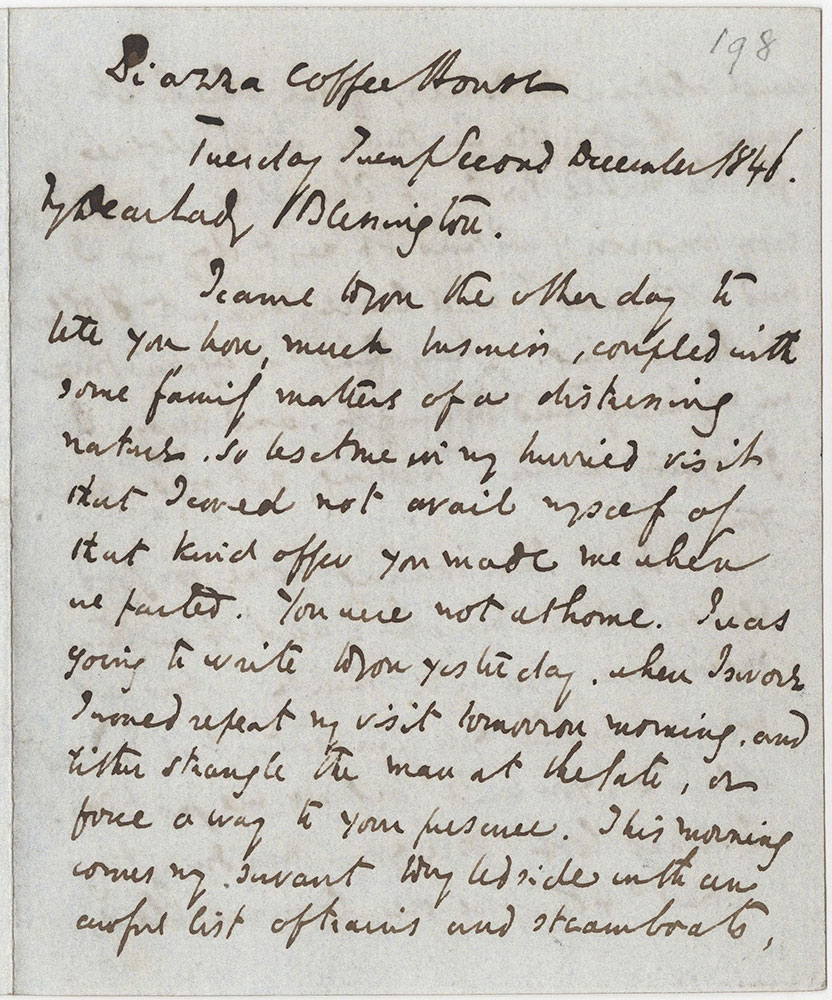 198
Piazza Coffee House
Tuesday Twenty Second December 1846.
My Dear Lady Blessington.
I came to you the other day to
tell you how much business, coupled with
some family matters of a distressing
nature, so beset me in my hurried visit
that I could not avail myself of
that kind offer you made me when
we parted. You were not at home. I was
going to write to you yesterday, when I swore
I would repeat my visit tomorrow morning, and
either strangle the man at the Gate, or
force a way to your presence. This morning
comes my servant to my bedside with an
awful list of trains and steamboats,